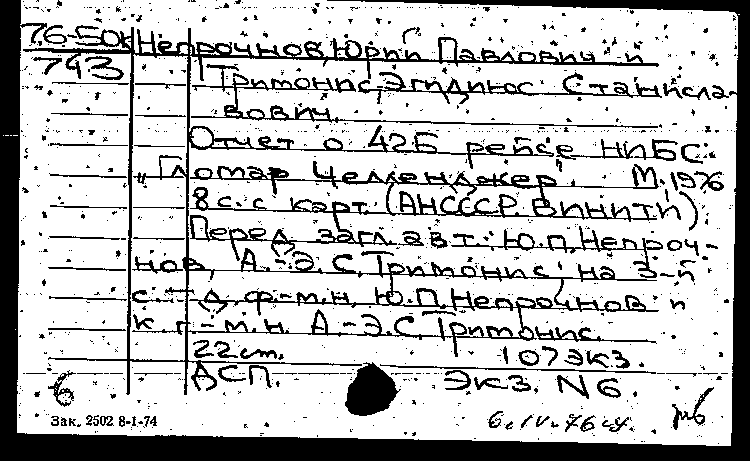 76-50к Непрочнов, Юрий Павлович и
743 Тримонис, Эгидиюс Станисла-
вович.
Отчет о 42Б рейсе НИБС:
"Гломар Челленджер". М., 1976
8 с. с карт. (АН СССР. ВИНИТИ).
Перед загл. авт.: Ю.П. Непроч-
нов, А.-Э.С. Тримонис; на 3-й
с. - д. ф.-м.н. Ю.П. Непрочнов и
к. г.-м.н. А.-Э.С. Тримонис.
22 см. 107 экз.
6 ДСП. Экз. N6.
Зак. 2502 8-1-74 6.IV-76